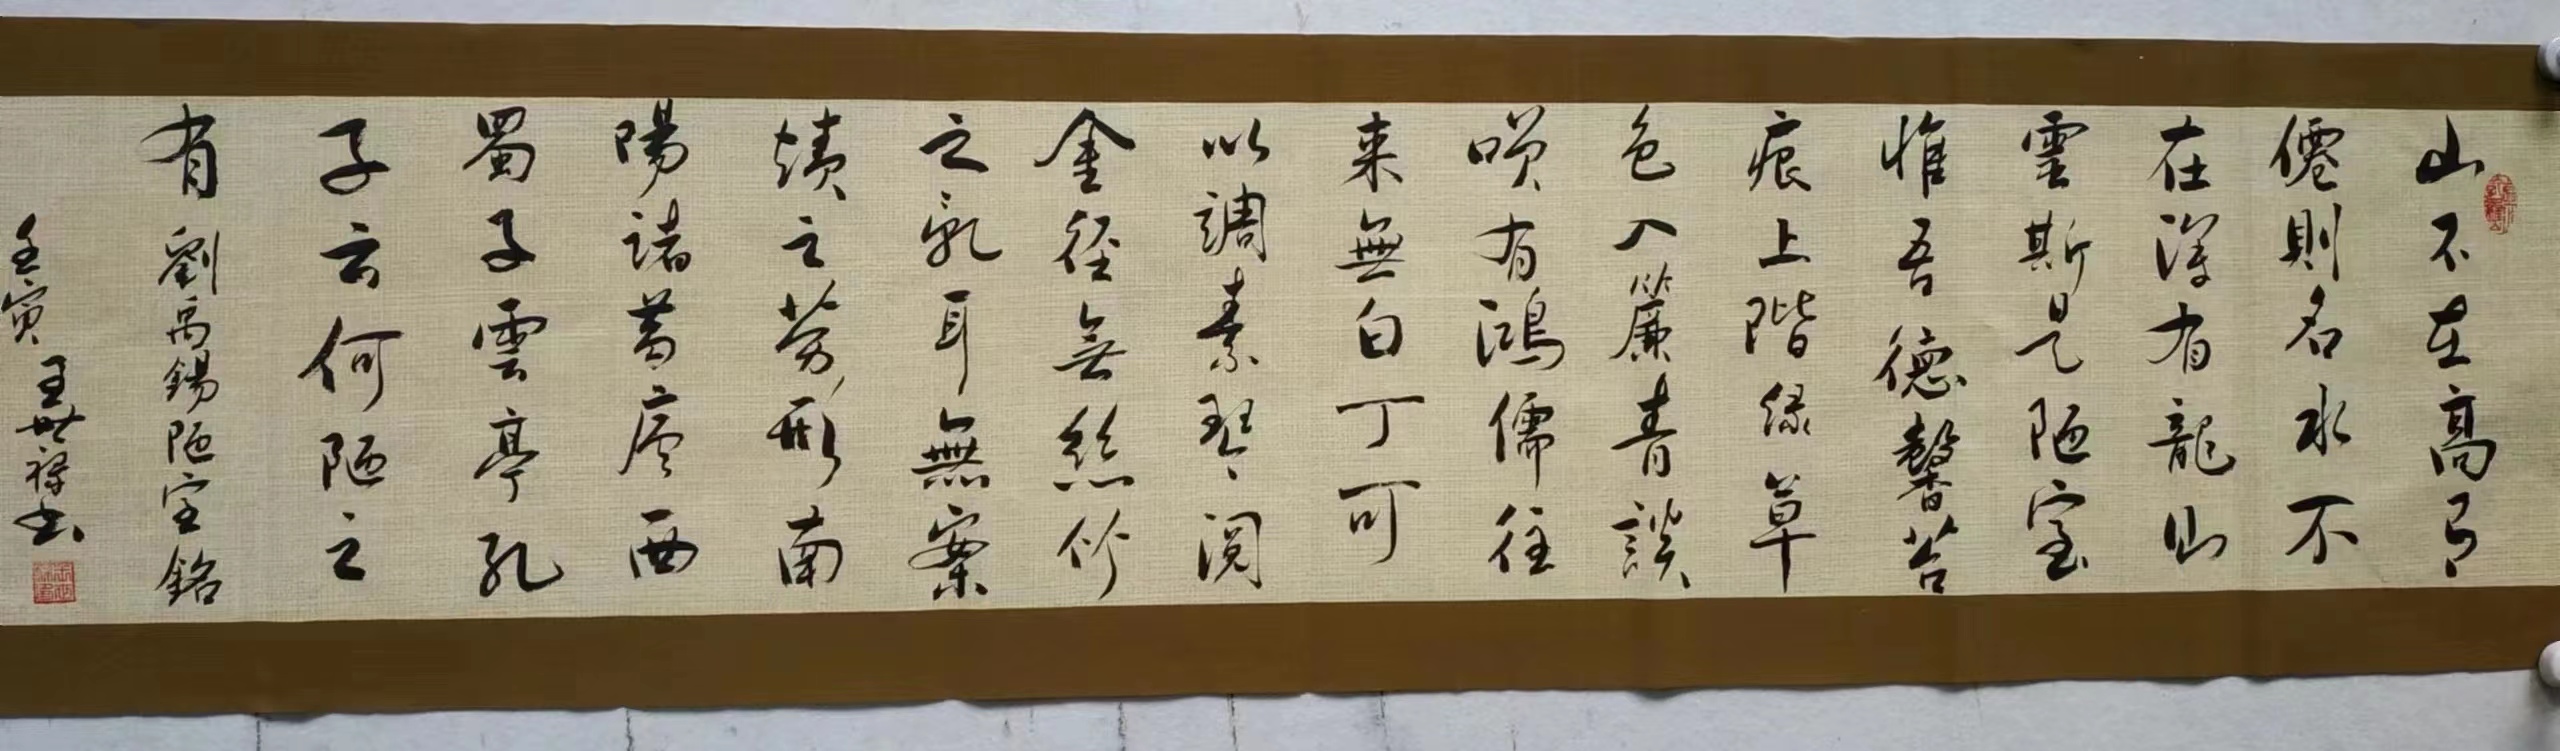 山不在高有
僊則名水不
在深有龍則
霊斯是陋室
惟吾德馨苔
痕上階緑草
色入簾青談
咲有鴻儒往
来無白丁可
以調素琴閲
金經無絲竹
之亂耳無案
牘之勞形南
陽諸葛廬西
蜀子雲亭孔
子云何陋之
有 劉禹錫陋室銘
壬寅 王世 书